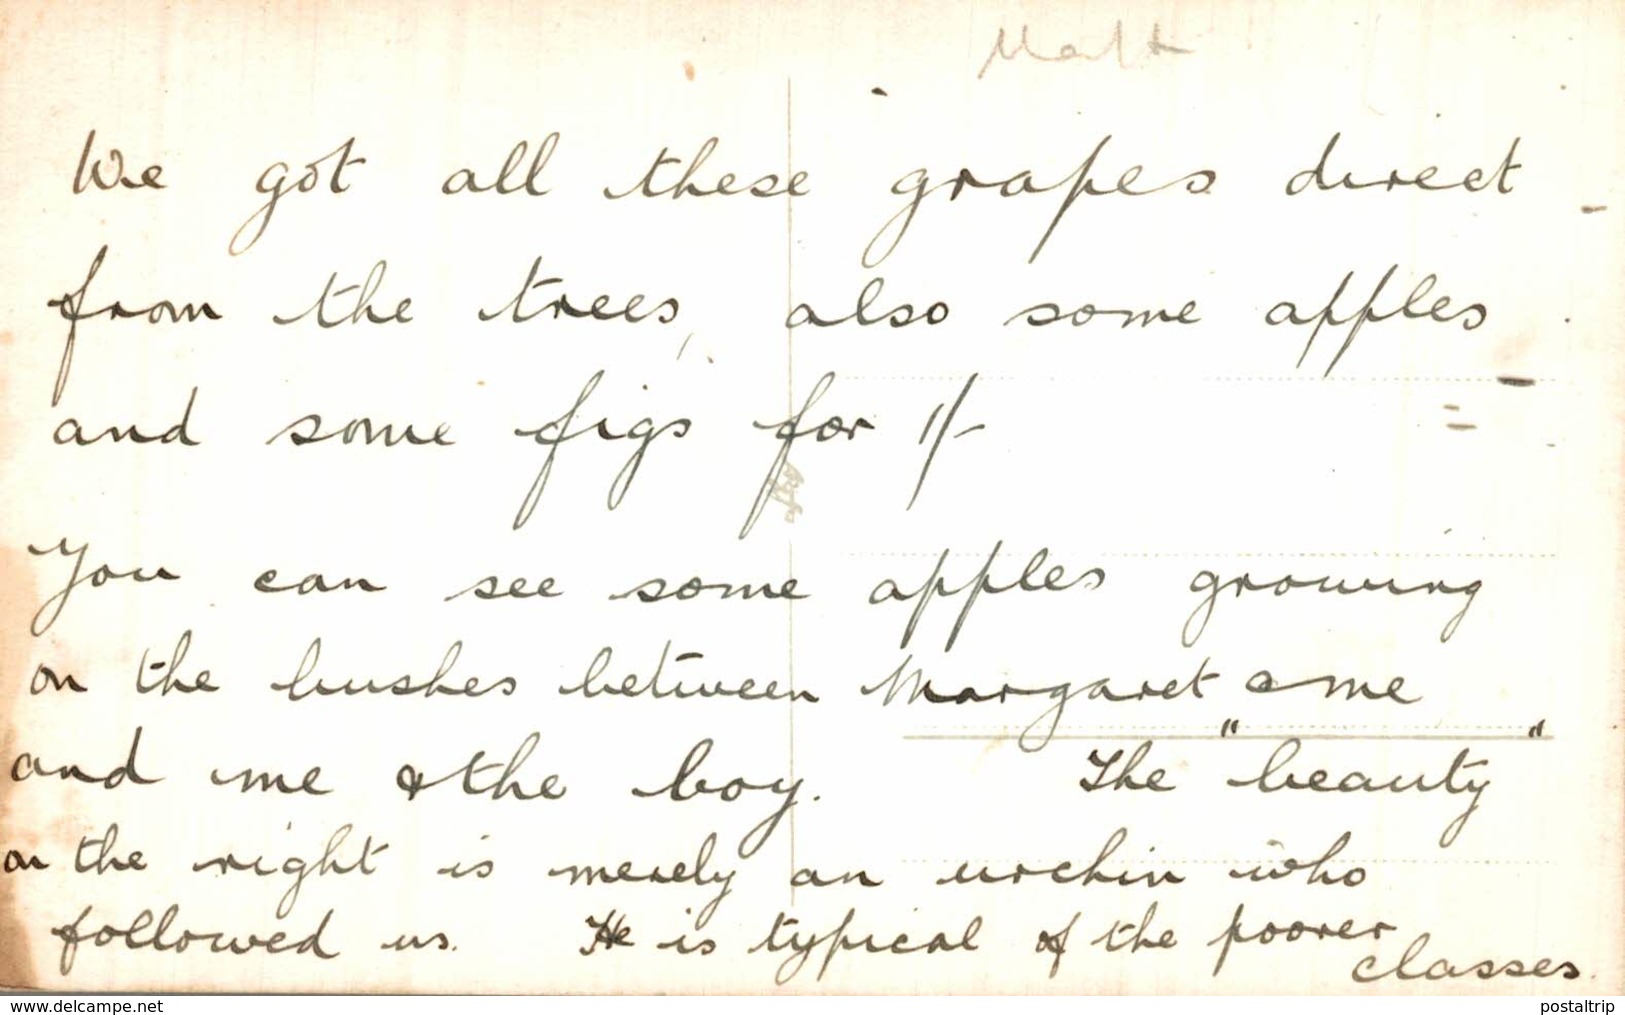 Malt
We got all these grapes direct
from the trees, also some apples
and some figs for 1/-
You can see some apples growing
on the bushes between Margaret & me
and me & the boy. The "beauty"
on the right is merely an urchin who
followed us. He is typical of the poorer
classes.
www.delcampe.net
postaltrip